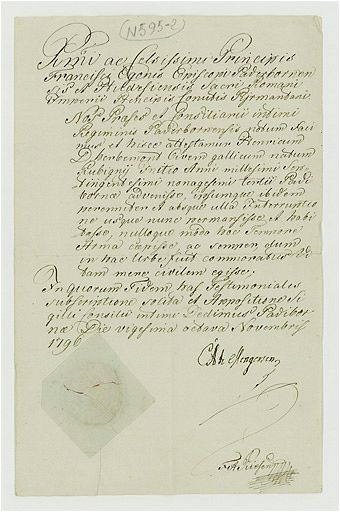 N595-2
Rmi ac Celsissimi Principis
Francisci Egonis Episcopi Paderbornen
Hildesiensis Sacri Romani
Imperii Principis Comitis Pyrmontani
Nos Præses et Consiliarii intimi
Regiminis Paderbornensis notum faci
mus et hisce attestamur Henricum
Civem gallicum natum
Rubigny Initio Anni millesimi Sep
tingentesimi nonagesimi tertii Padi
bornæ advenisse, ipsumque ibidem
perenniter et absque ulla Interruptio
ne usque nunc permansisse et habi
tasse, nulloque modo hoc Tempore
Arma cepisse, ac semper dum
in hac Urbe fuit commoratus vi
tam mere civilem egisse.
In quorum Fidem has Testimoniales
subscriptione solita et Appositione Si
gilli Consilii intimi Dedimus Padibor
næ Die vigesima octava Novembris
1796
Mengersen